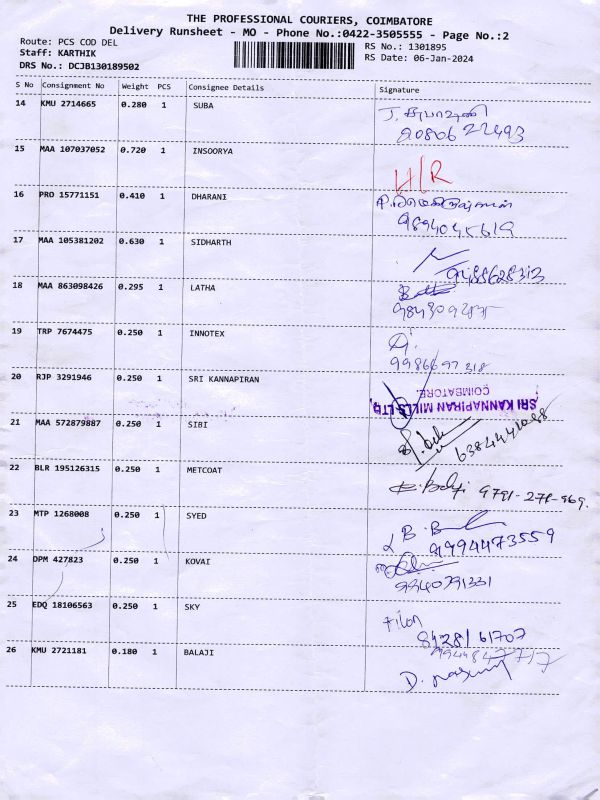 THE PROFESSIONAL COURIERS, COIMBATORE
Delivery Runsheet - MO - Phone No.:0422-3505555 - Page No.:2
Route: PCS COD DEL
Staff: KARTHIK
DRS No.: DCJB130189502
RS No.: 1301895
RS Date: 06-Jan-2024
S No Consignment No Weight PCS Consignee Details Signature
14 KMU 2714665 0.280 1 SUBA
15 MAA 107037052 0.720 1 INSOORYA
H/R
16 PRO 15771151 0.410 1 DHARANI
9894045619
17 MAA 105381202 0.630 1 SIDHARTH
9488628313
18 MAA 863098426 0.295 1 LATHA
19 TRP 7674475 0.250 1 INNOTEX
20 RJP 3291946 0.250 1 SRI KANNAPIRAN
SRI KANNAPIRAN MILLS LTD,
COIMBATORE.
21 MAA 572879887 0.250 1 SIBI
22 BLR 195126315 0.250 1 METCOAT
9791-271-969.
23 MTP 1268008 0.250 1 SYED
9994473559
24 DPM 427823 0.250 1 KOVAI
9940791331
25 EDQ 18106563 0.250 1 SKY
8428161707
26 KMU 2721181 0.180 1 BALAJI
9944847717